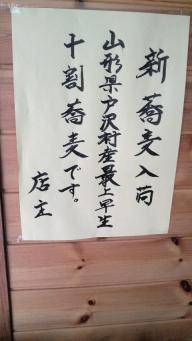 新蕎麦入荷
山形県戸沢村産最上早生
十割蕎麦です。
店主